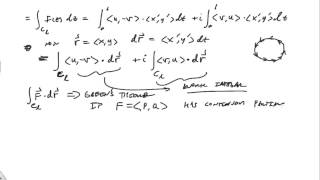 = ∫_{C_1} f(z) dz = ∫_0^1 <u,-v> · <x',y'> dt + i ∫_0^1 <v,u> · <x',y'> dt
* Now r⃗ = <x,y> dr⃗ = <x',y'> dt
= ∫_{C_1} <u,-v> · dr⃗ + i ∫_{C_1} <v,u> · dr⃗
∫_{C_1} F⃗ · dr⃗ ⇒ Green's Theorem
If F = <P,Q> has continuous partials